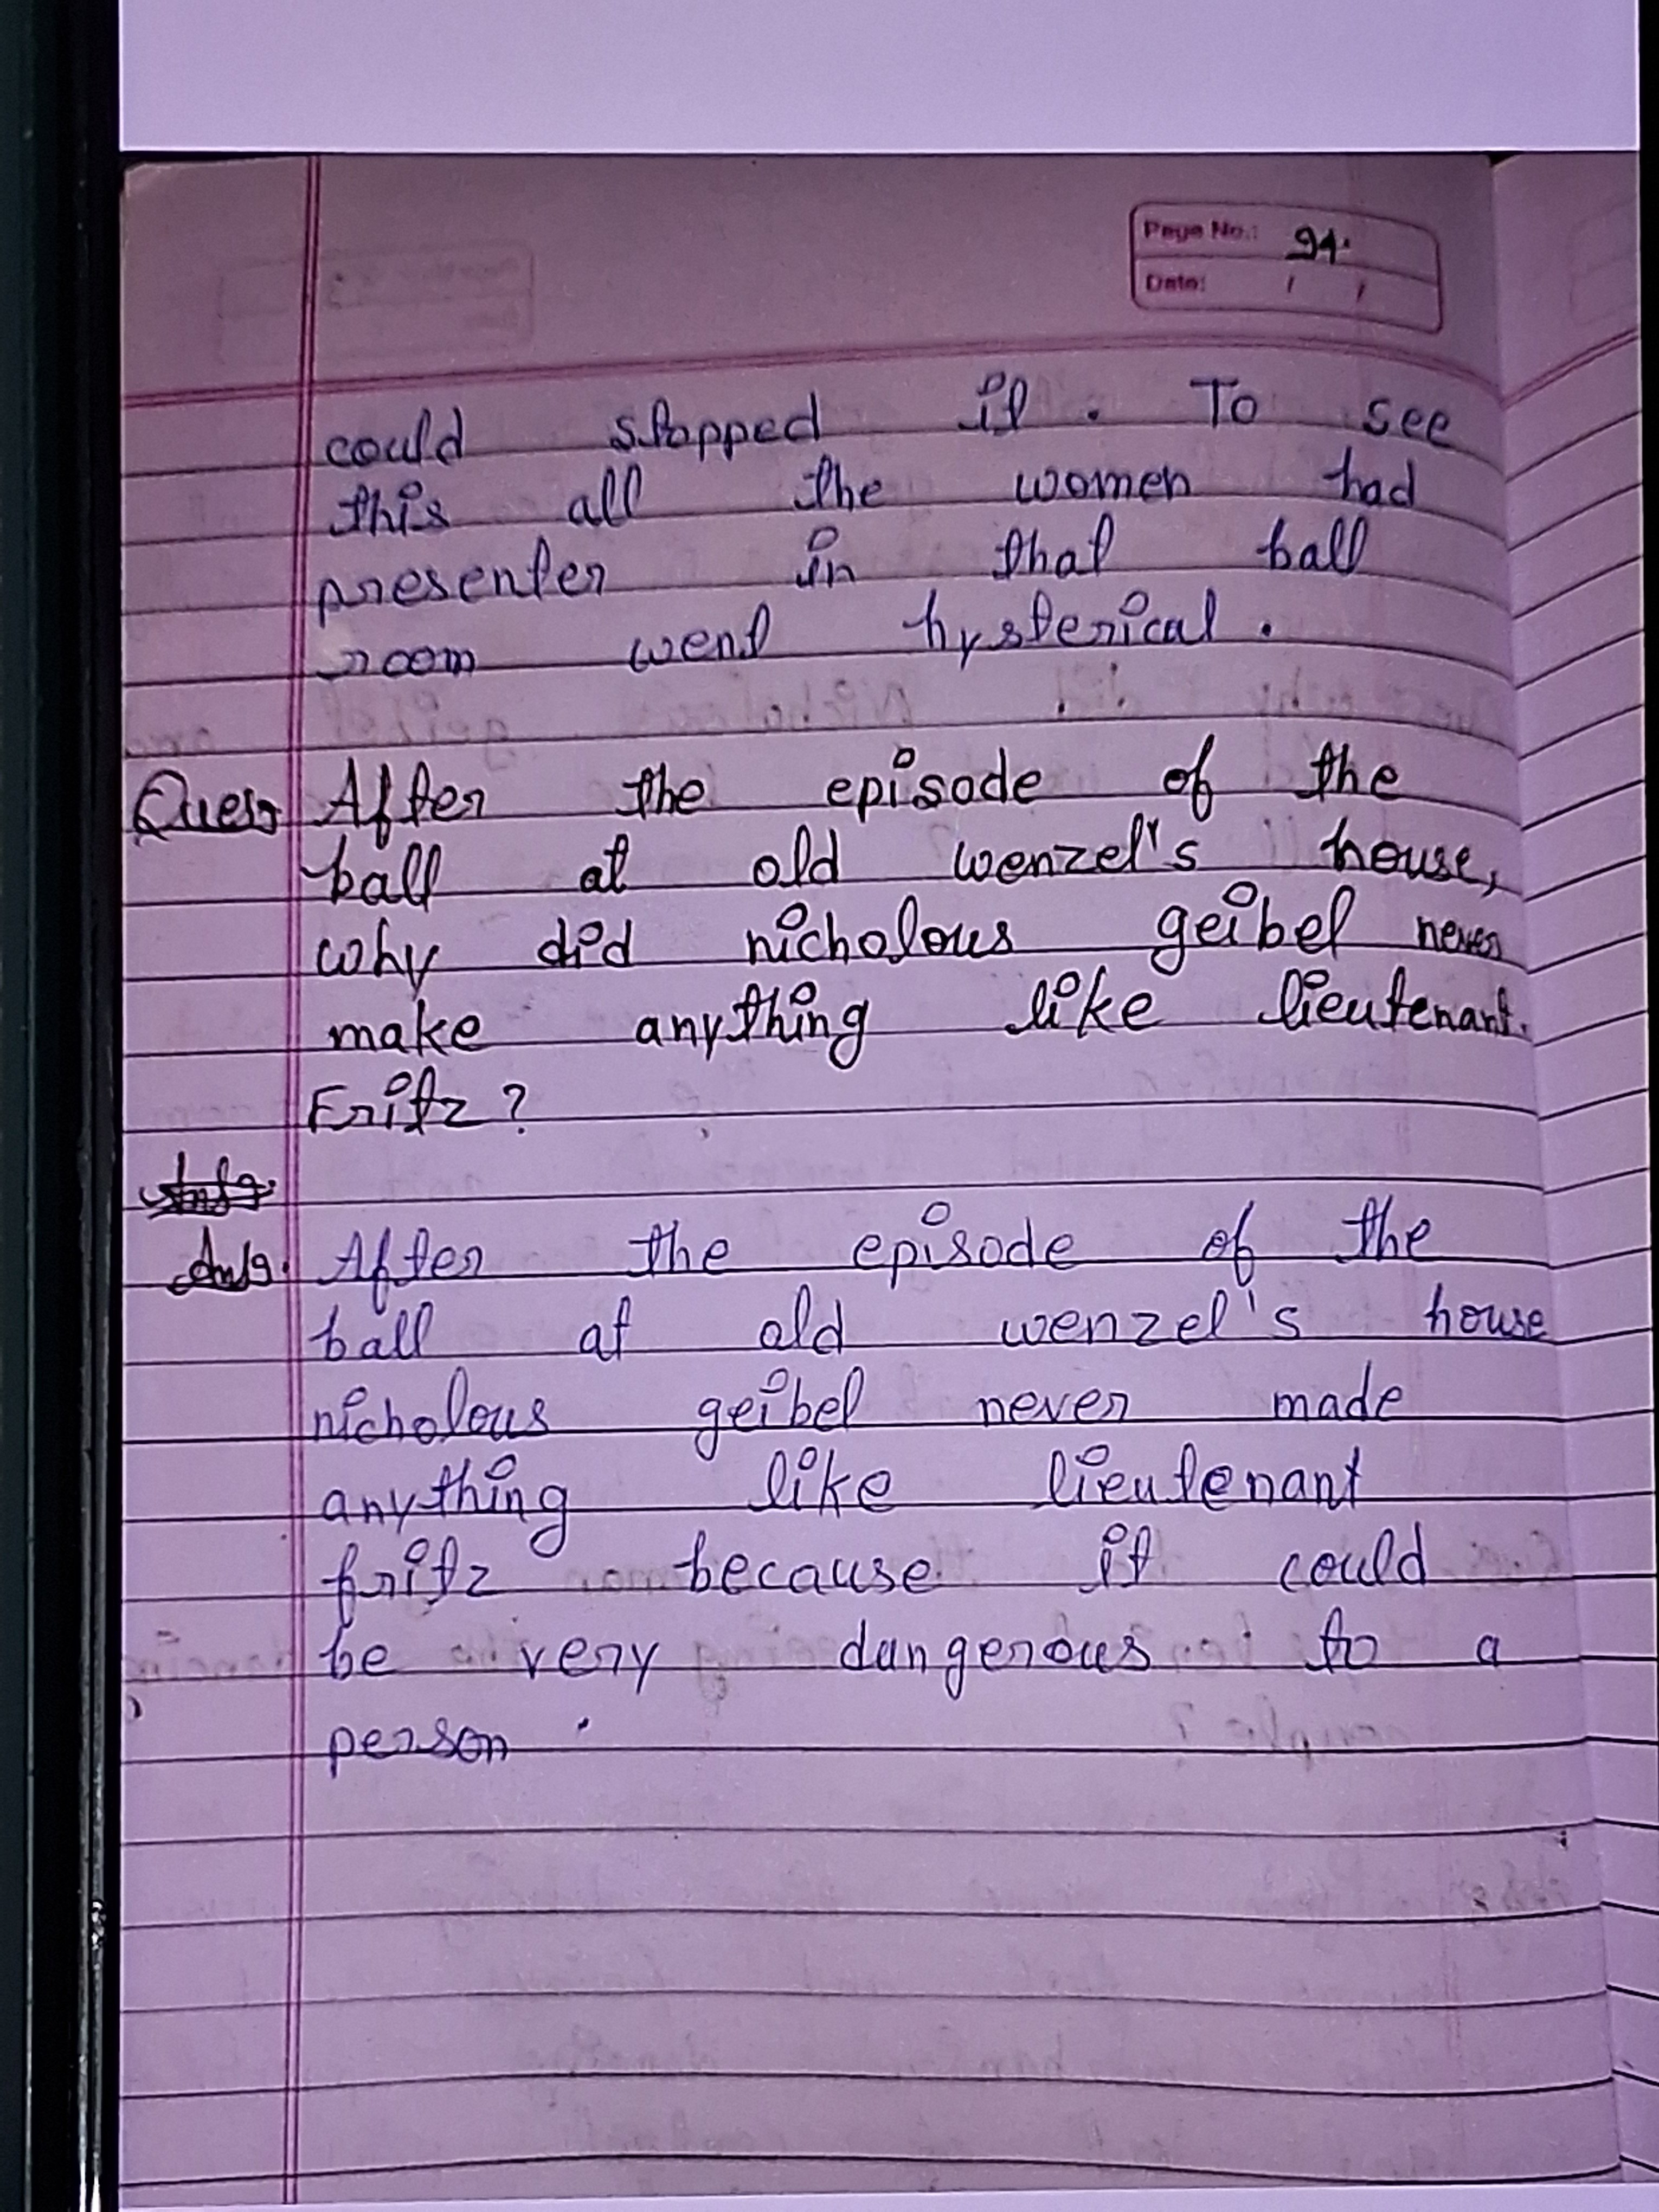 Page No.: 94.
Date: / /
could stopped it. To see
this all the women had
presenter in that ball
room went hysterical.
Ques After the episode of the
ball at old wenzel's house,
why did nicholous geibel never
make anything like lieutenant.
Fritz?
Ans. After the episode of the
ball at old wenzel's house
nicholous geibel never made
anything like lieutenant
fritz because it could
be very dangerous to a
person.